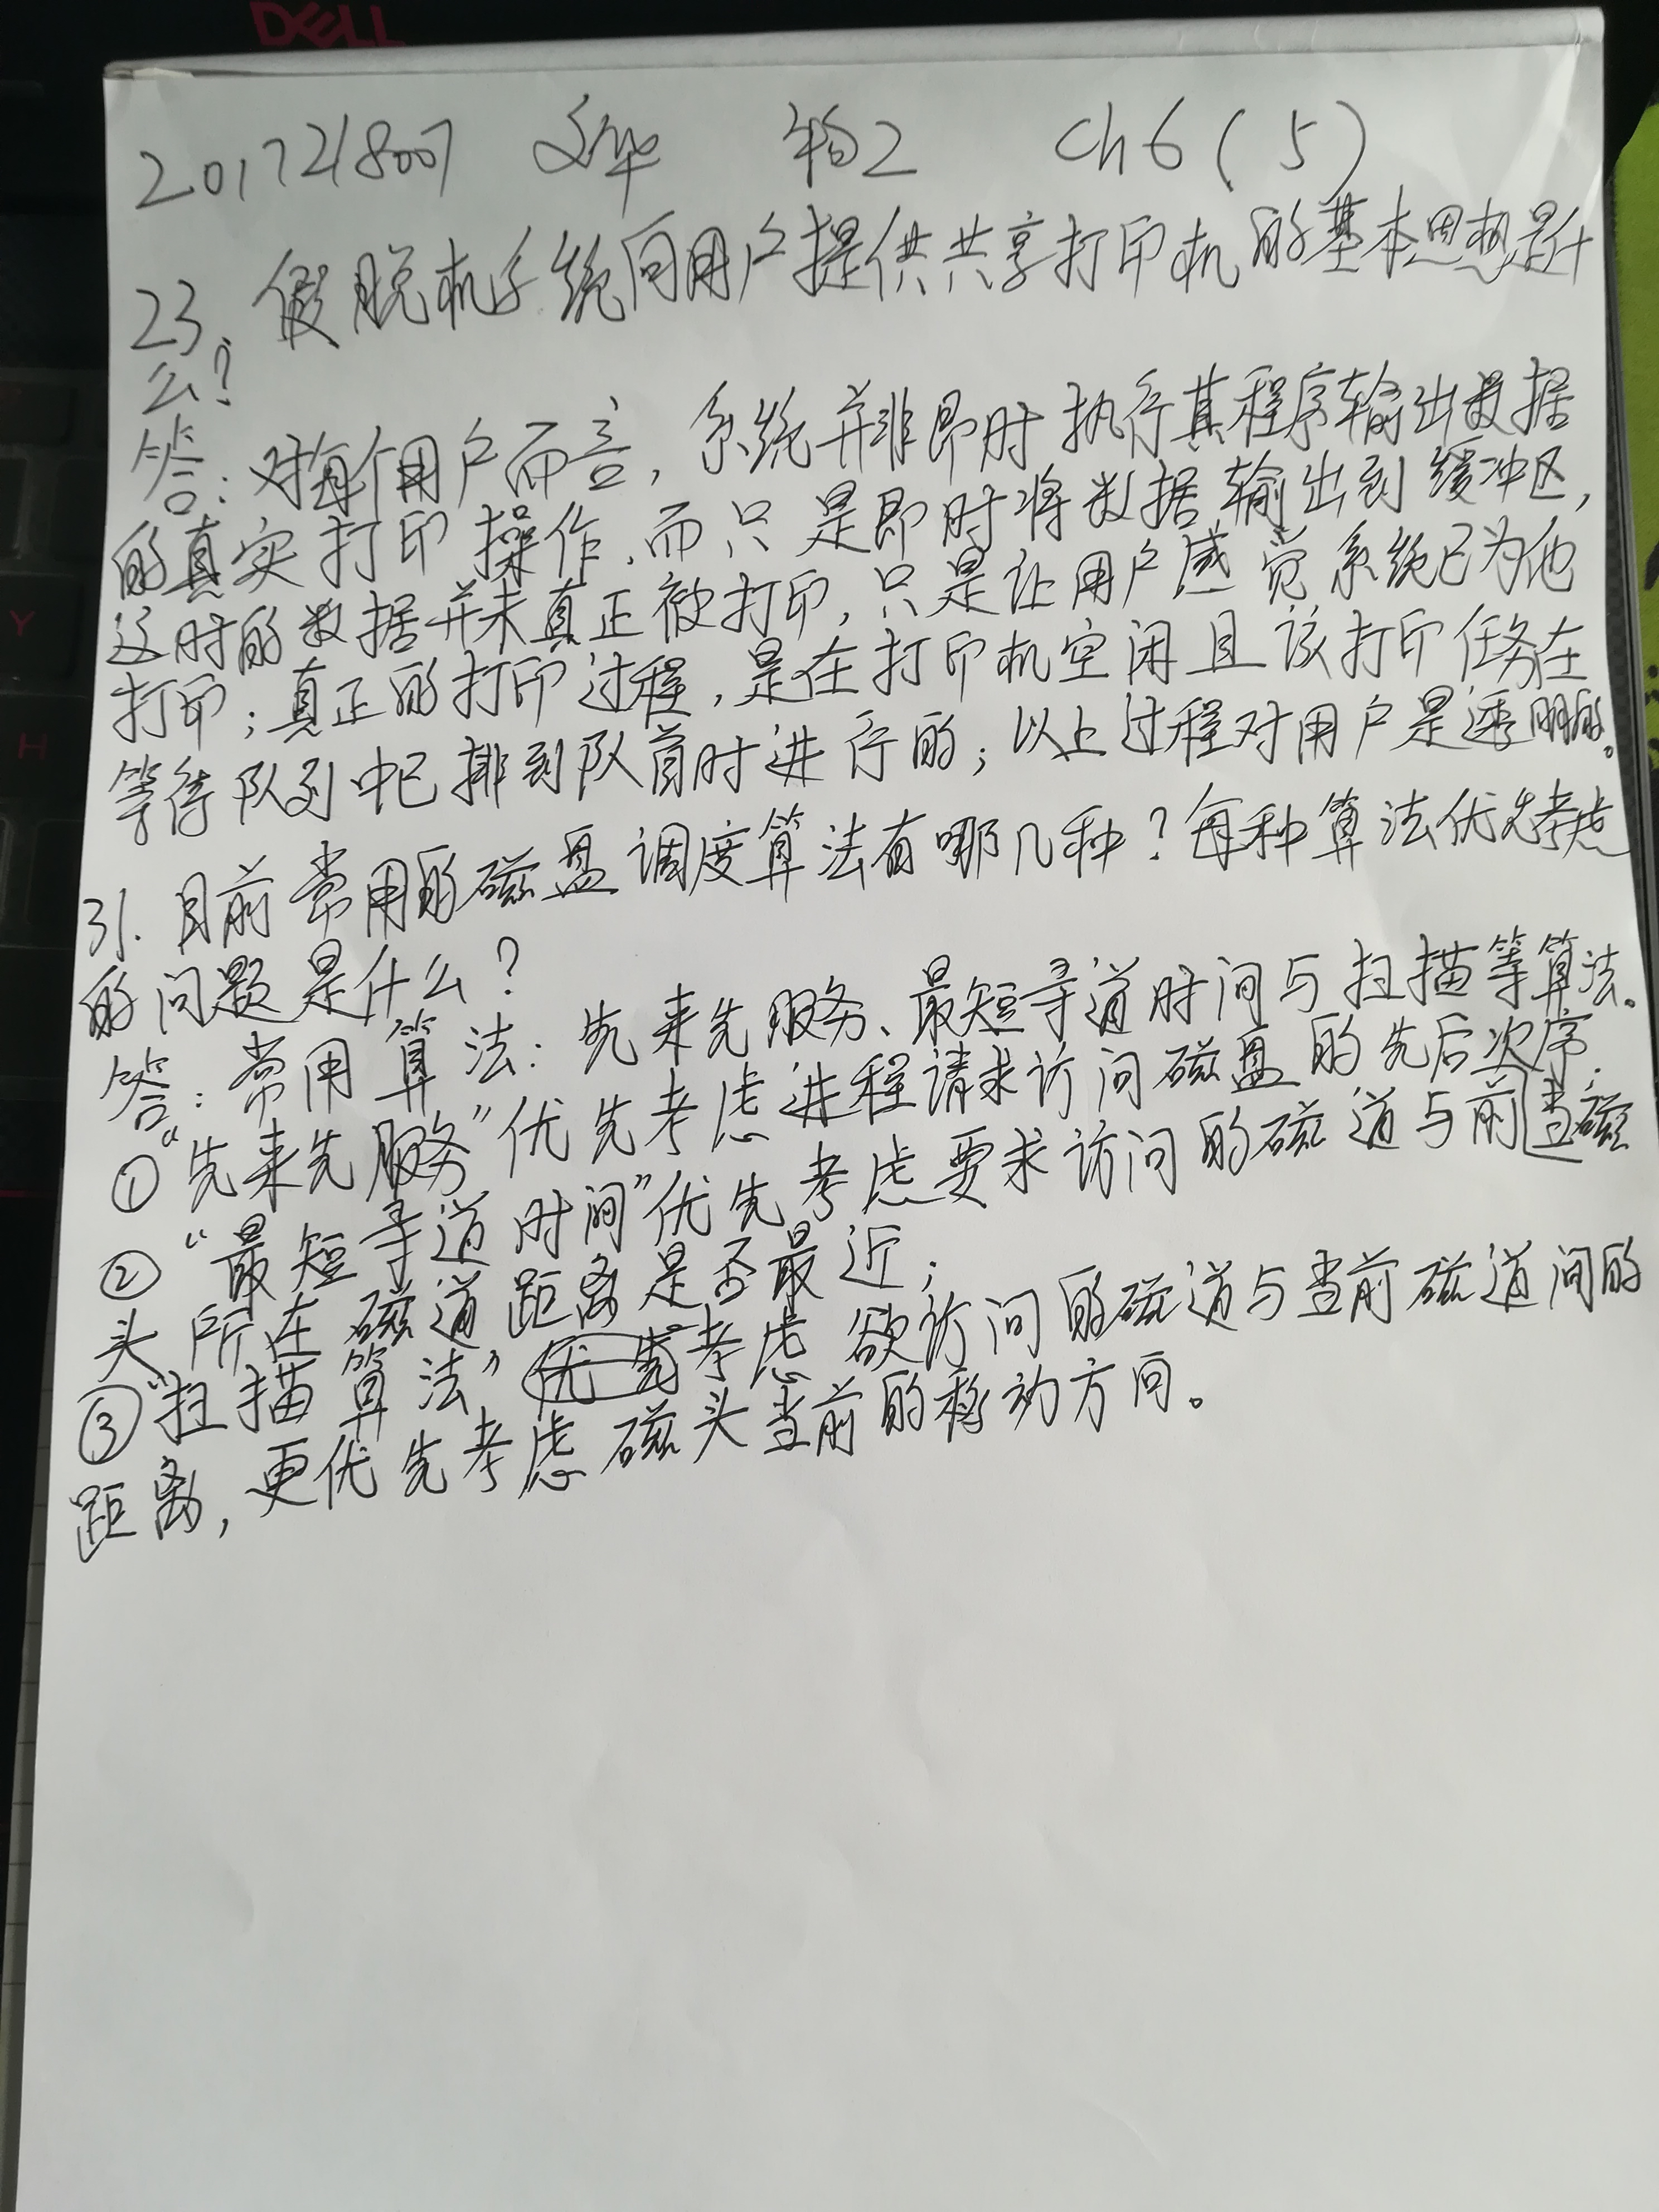 DELL
2017218007 物2 Ch6(5)
23、假脱机系统向用户提供共享打印机的基本思想是什
么?
答:对每个用户而言,系统并非即时执行其程序输出数据
的真实打印操作,而只是即时将数据输出到缓冲区,
这时的数据并未真正被打印,只是让用户感觉系统已为他
打印;真正的打印过程,是在打印机空闲且该打印任务在
等待队列中已排到队首时进行的;以上过程对用户是透明的。
31.目前常用的磁盘调度算法有哪几种?每种算法优先考虑
的问题是什么?
答:常用算法:先来先服务、最短寻道时间与扫描等算法。
①“先来先服务”优先考虑进程请求访问磁盘的先后次序.
②“最短寻道时间”优先考虑要求访问的磁道与前当磁
头所在磁道距离是否最近;
③“扫描算法”优先考虑欲访问的磁道与当前磁道间的
距离,更优先考虑磁头当前的移动方向。
Y
H